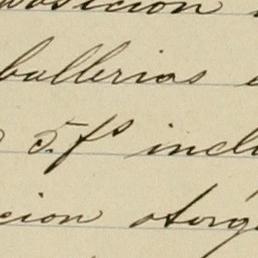 osicion
ballerias
5. fs incl
cion otorg